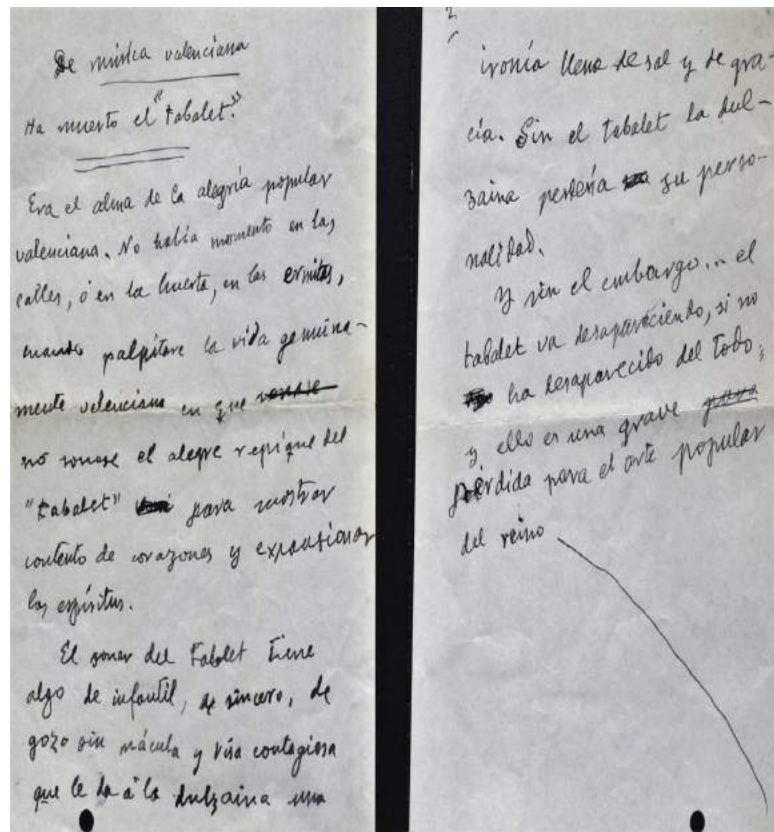 De música valenciana
Ha muerto el "tabalet."
Era el alma de la alegría popular
valenciana. No había momento en las
calles, ó en la huerta, en las ermitas,
cuando palpitare la vida genuina-
mente valenciana en que
no sonase el alegre repique del
"tabalet" para mostrar
contento de corazones y expansionar
los espíritus.
El sonar del tabalet tiene
algo de infantil, de sincero, de
gozo sin mácula y risa contagiosa
que le da á la dulzaina una
2
ironía llena de sal y de gra-
cia. Sin el tabalet la dul-
zaina perdería su perso-
nalidad.
Y sin el embargo... el
tabalet va desapareciendo, si no
ha desaparecido del todo;
y ello es una grave
pérdida para el arte popular
del reino